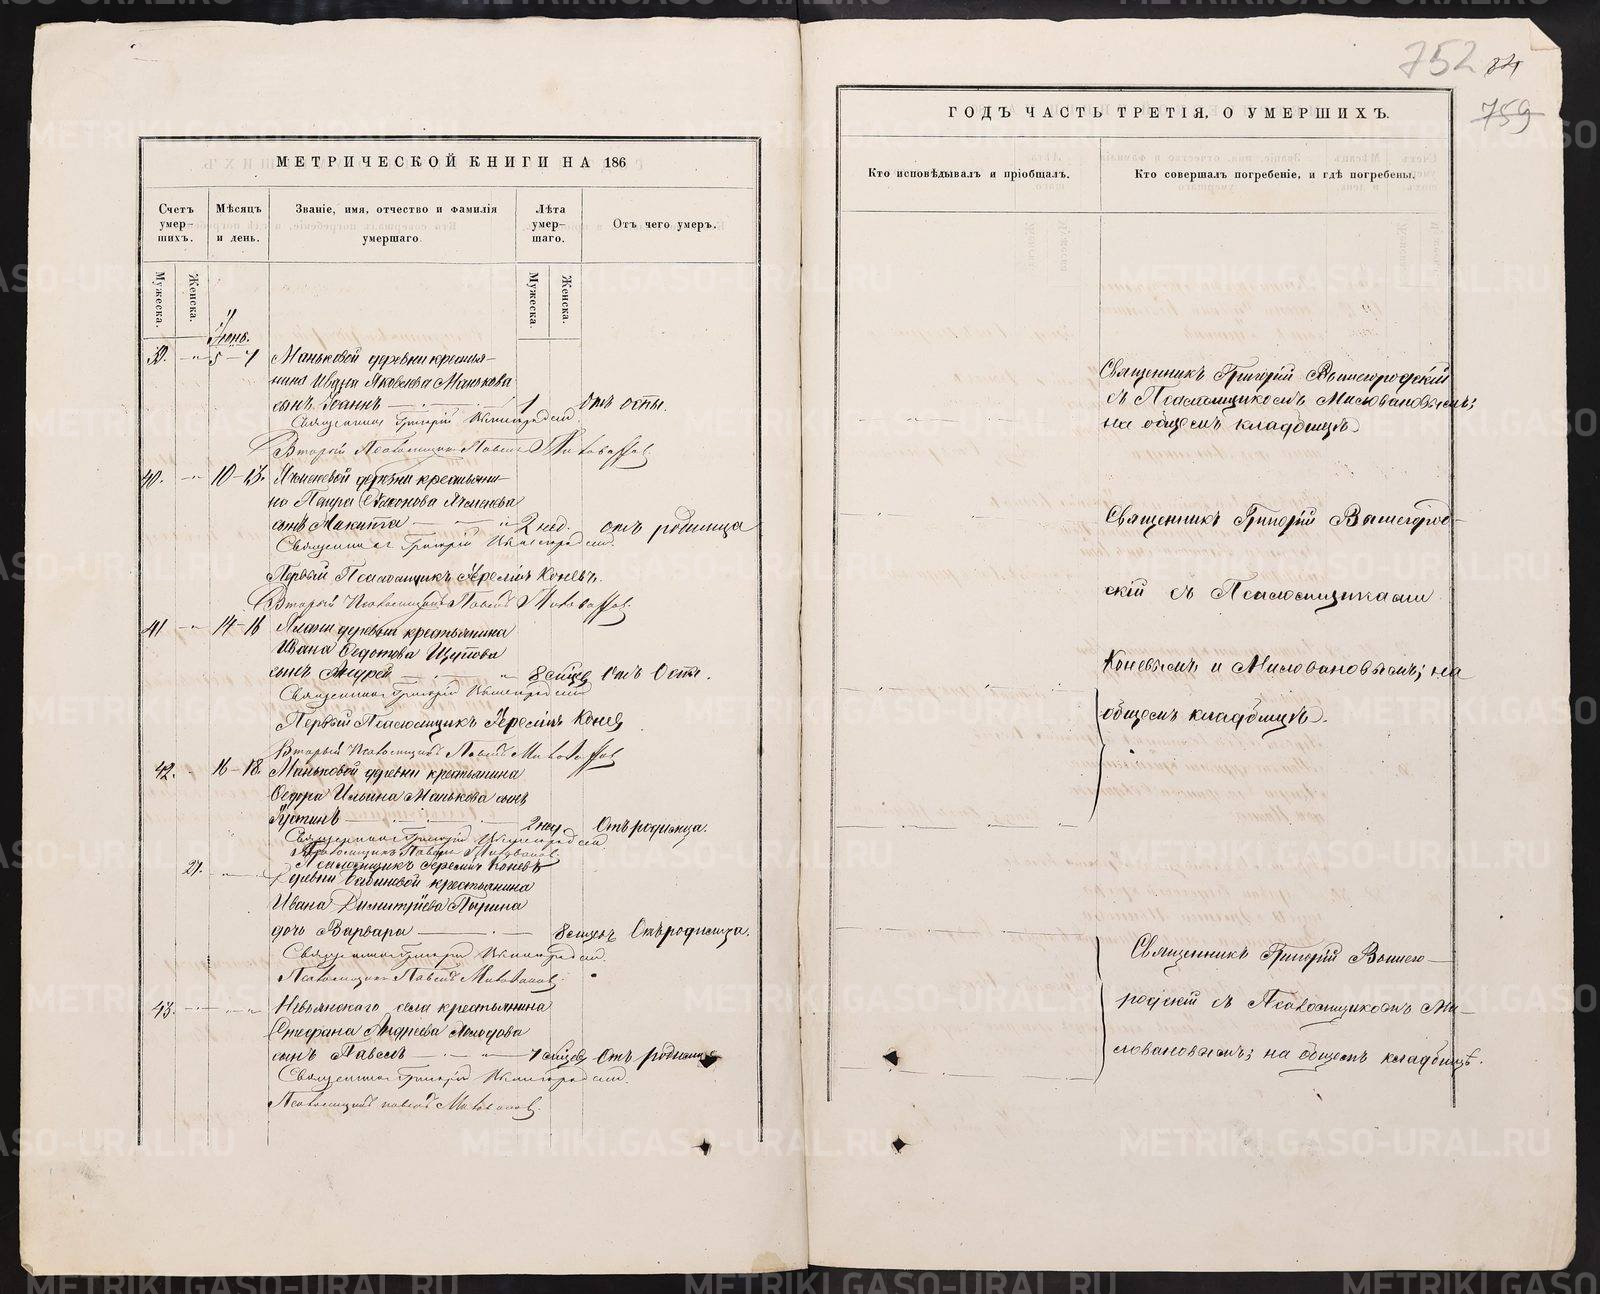 752 84
759
МЕТРИЧЕСКОЙ КНИГИ НА 186
Счетъ умер-шихъ.
Мѣсяцъ и день.
Званіе, имя, отчество и фамилія умершаго.
Лѣта умер-шаго.
Отъ чего умеръ.
Мужеска.
Женска.
Мужеска.
Женска.
Іюнь.
5 – 7 Маньковой деревни крестья-
нина Ивана Яковлева Манькова
сынъ Іоаннъ 1 отъ оспы.
Священникъ Григорій Вышегородскій
Второй Псаломщикъ Павелъ Миловановъ
40. 10 – 13. деревни крестьяни-
на
сынъ Никита 2 нед. отъ родимца
Священникъ Григорій Вышегородскій
Первый Псаломщикъ Іеремія Коневъ.
Второй Псаломщикъ Павелъ Миловановъ
41 14 – 16 деревни крестьянина
Ивана Федотова Щупова
сынъ Андрей 8 мѣсяц Отъ Оспы.
Священникъ Григорій Вышегородскій
Первый Псаломщикъ Іеремія Конев
Второй Псаломщикъ Павелъ Миловановъ
42. 16 – 18. Маньковой деревни крестьянина
Ѳедора Ильина Манькова сынъ
Іустинъ 2 нед Отъ родимца.
Священникъ Григорій Вышегородскій
Псаломщикъ Павелъ Миловановъ
Псаломщикъ Іеремія Коневъ
27. Деревни крестьянина
Ивана Димитріева
дочь Варвара Отъ родимца.
Священникъ Григорій Вышегородскій
Псаломщикъ Павелъ Миловановъ.
43. Невьянскаго села крестьянина
Стефана Андреева
сынъ Павелъ Отъ родимца
Священникъ Григорій Вышегородскій.
Псаломщикъ Павелъ Миловановъ.
ГОДЪ ЧАСТЬ ТРЕТІЯ, О УМЕРШИХЪ.
Кто исповѣдывалъ и пріобщалъ.
Кто совершалъ погребеніе, и гдѣ погребены.
Священникъ Григорій Вышегородскій
съ Псаломщикомъ Миловановымъ;
на общемъ кладбищѣ.
Священникъ Григорій Вышегород-
скій съ Псаломщиками
Коневымъ и Миловановымъ; на
общемъ кладбищѣ.
Священникъ Григорій Вышего-
родскій съ Псаломщикомъ Ми-
ловановымъ; на общемъ кладбищѣ.
METRIKI.GASO-URAL.RU